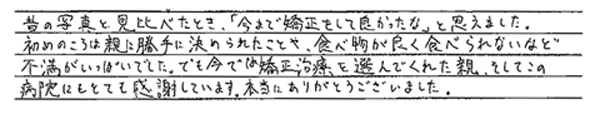 昔の写真と見比べたとき、「今まで矯正をして良かったな」と思えました。
初めのころは親に勝手に決められたことや、食べ物が良く食べられないなど
不満がいっぱいでした。でも今では矯正治療を選んでくれた親、そしてこの
病院にもとても感謝しています。本当にありがとうございました。